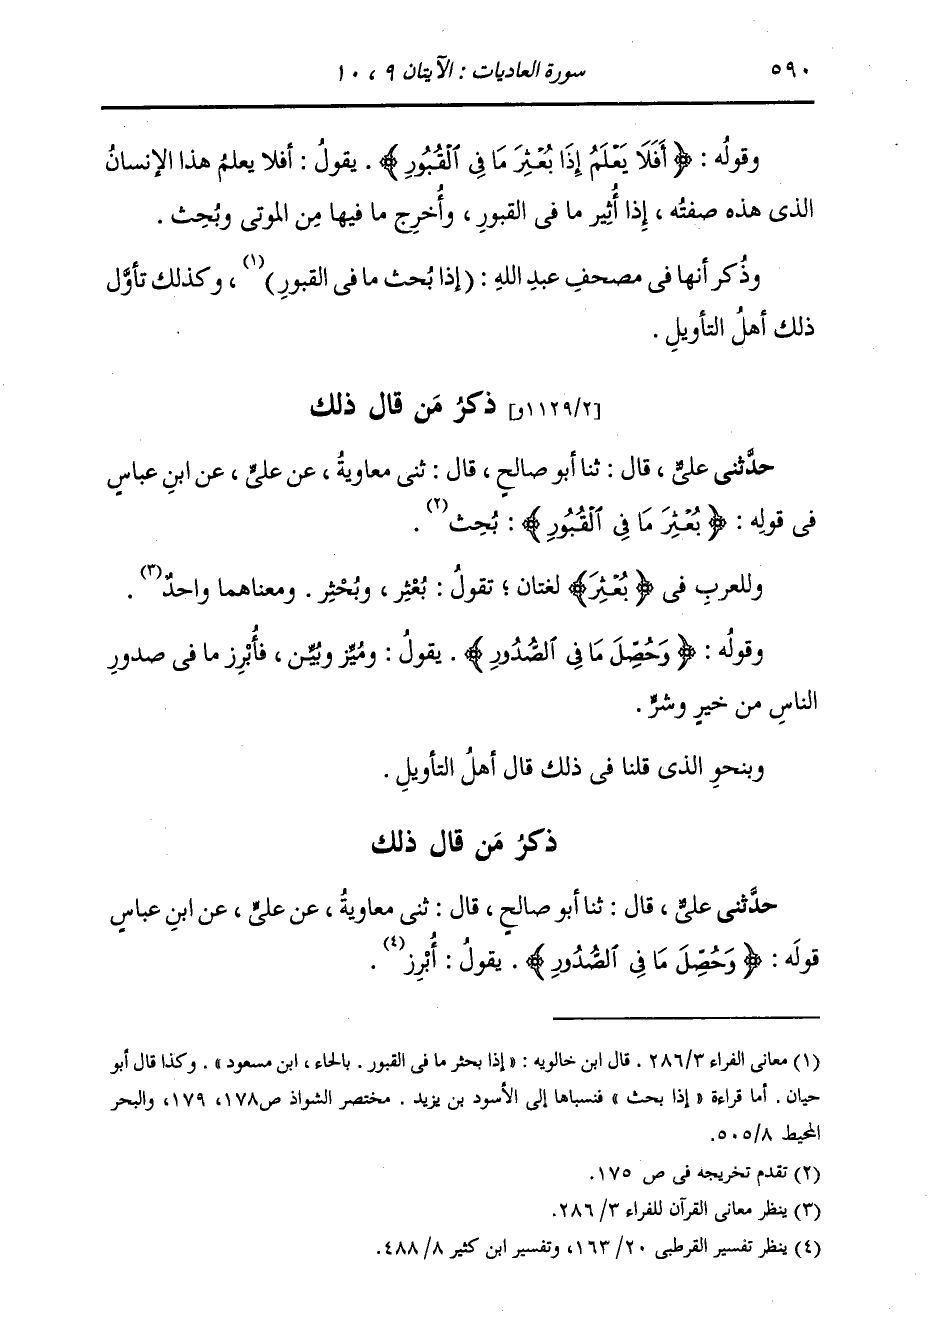 ٥٩٠ سورة العاديات : الآيتان ٩ ، ١٠
وقولُه : ﴿ أَفَلَا يَعْلَمُ إِذَا بُعْثِرَ مَا فِي ٱلْقُبُورِ ﴾ . يقولُ : أفلا يعلمُ هذا الإنسانُ
الذى هذه صفتُه ، إذا أُثِير ما فى القبورِ ، وأُخرِج ما فيها مِن الموتى وبُحِث .
وذُكر أنها فى مصحفِ عبدِ اللهِ : (إذا بُحث ما فى القبورِ)(١) ، وكذلك تأوَّل
ذلك أهلُ التأويلِ .
[١١٢٩/٢و] ذكرُ مَن قال ذلك
حدَّثنى علىٌّ ، قال : ثنا أبو صالحٍ ، قال : ثنى معاويةُ ، عن علىٍّ ، عن ابنِ عباسٍ
فى قولِه : ﴿ بُعْثِرَ مَا فِي ٱلْقُبُورِ ﴾ : بُحِث(٢) .
وللعربِ فى ﴿ بُعْثِرَ ﴾ لغتان ؛ تقولُ : بُعْثِر ، وبُحْثِر . ومعناهما واحدٌ(٣) .
وقولُه : ﴿ وَحُصِّلَ مَا فِي ٱلصُّدُورِ ﴾ . يقولُ : ومُيِّز وبُيِّن ، فأُبْرِز ما فى صدورِ
الناسِ من خيرٍ وشرٍّ .
وبنحوِ الذى قلنا فى ذلك قال أهلُ التأويلِ .
ذكرُ مَن قال ذلك
حدَّثنى علىٌّ ، قال : ثنا أبو صالحٍ ، قال : ثنى معاويةُ ، عن علىٍّ ، عن ابنِ عباسٍ
قولَه : ﴿ وَحُصِّلَ مَا فِي ٱلصُّدُورِ ﴾ . يقولُ : أُبْرِز(٤) .
(١) معانى الفراء ٢٨٦/٣ . قال ابن خالويه : « إذا بحثر ما فى القبور . بالحاء ، ابن مسعود » . وكذا قال أبو
حيان . أما قراءة « إذا بحث » فنسباها إلى الأسود بن يزيد . مختصر الشواذ ص١٧٨، ١٧٩، والبحر
المحيط ٥٠٥/٨.
(٢) تقدم تخريجه فى ص ١٧٥.
(٣) ينظر معانى القرآن للفراء ٣/ ٢٨٦.
(٤) ينظر تفسير القرطبى ٢٠/ ١٦٣، وتفسير ابن كثير ٨/ ٤٨٨.